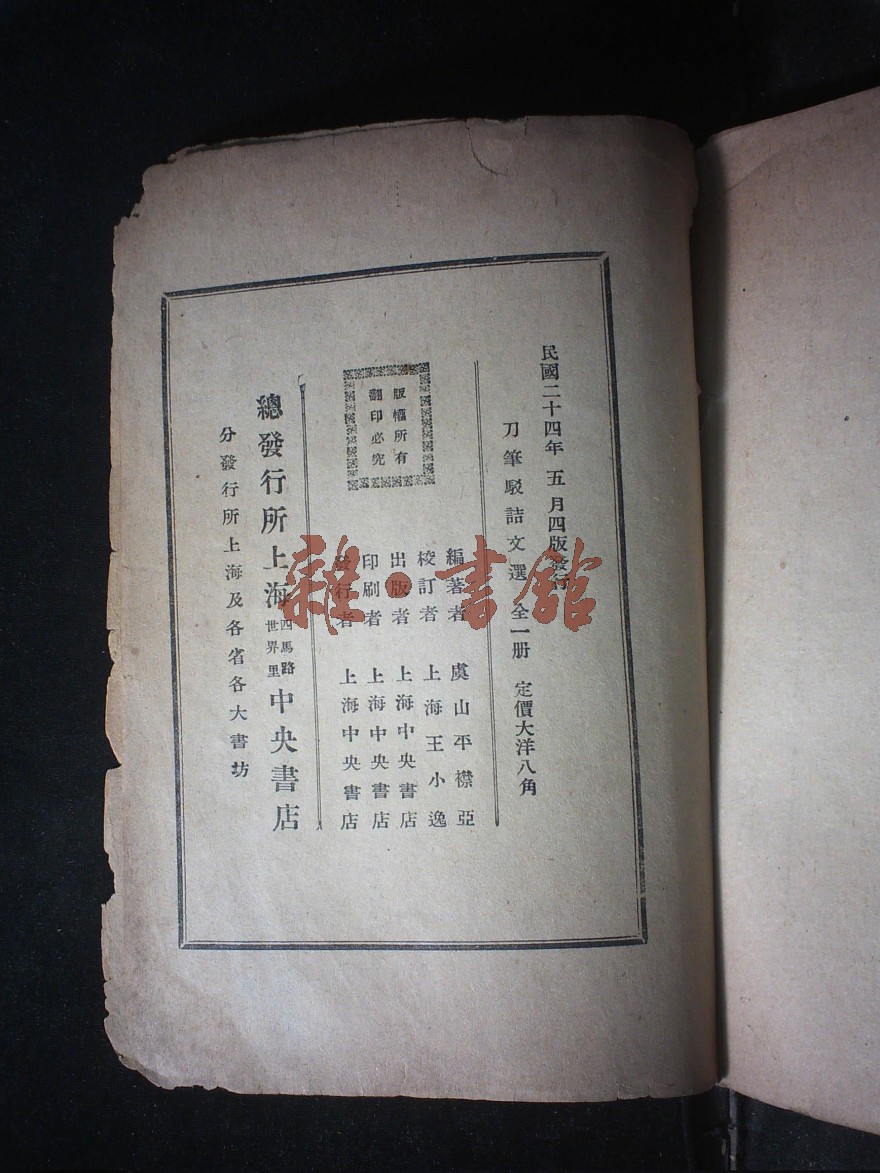 民國二十四年五月四版發行
刀筆駁詰文選 全一册 定價大洋八角
版權所有
翻印必究
編著者 虞山平襟亞
校訂者 上海王小逸
出版者 上海中央書店
印刷者 上海中央書店
發行者 上海中央書店
總發行所上海四馬路世界里中央書店
分發行所上海及各省各大書坊
雜·書館